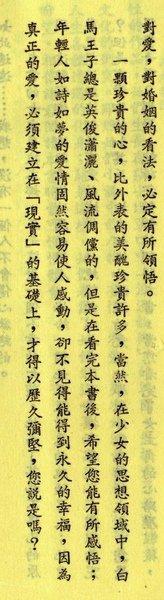 對愛，對婚姻的看法，必定有所領悟。
一顆珍貴的心，比外表的美醜珍貴許多，當然，在少女的思想領域中，白
馬王子總是英俊瀟灑、風流倜儻的，但是在看完本書後，希望您能有所感悟；
年輕人如詩如夢的愛情固然容易使人感動，卻不見得能得到永久的幸福，因為
真正的愛，必須建立在「現實」的基礎上，才得以歷久彌堅，您說是嗎？